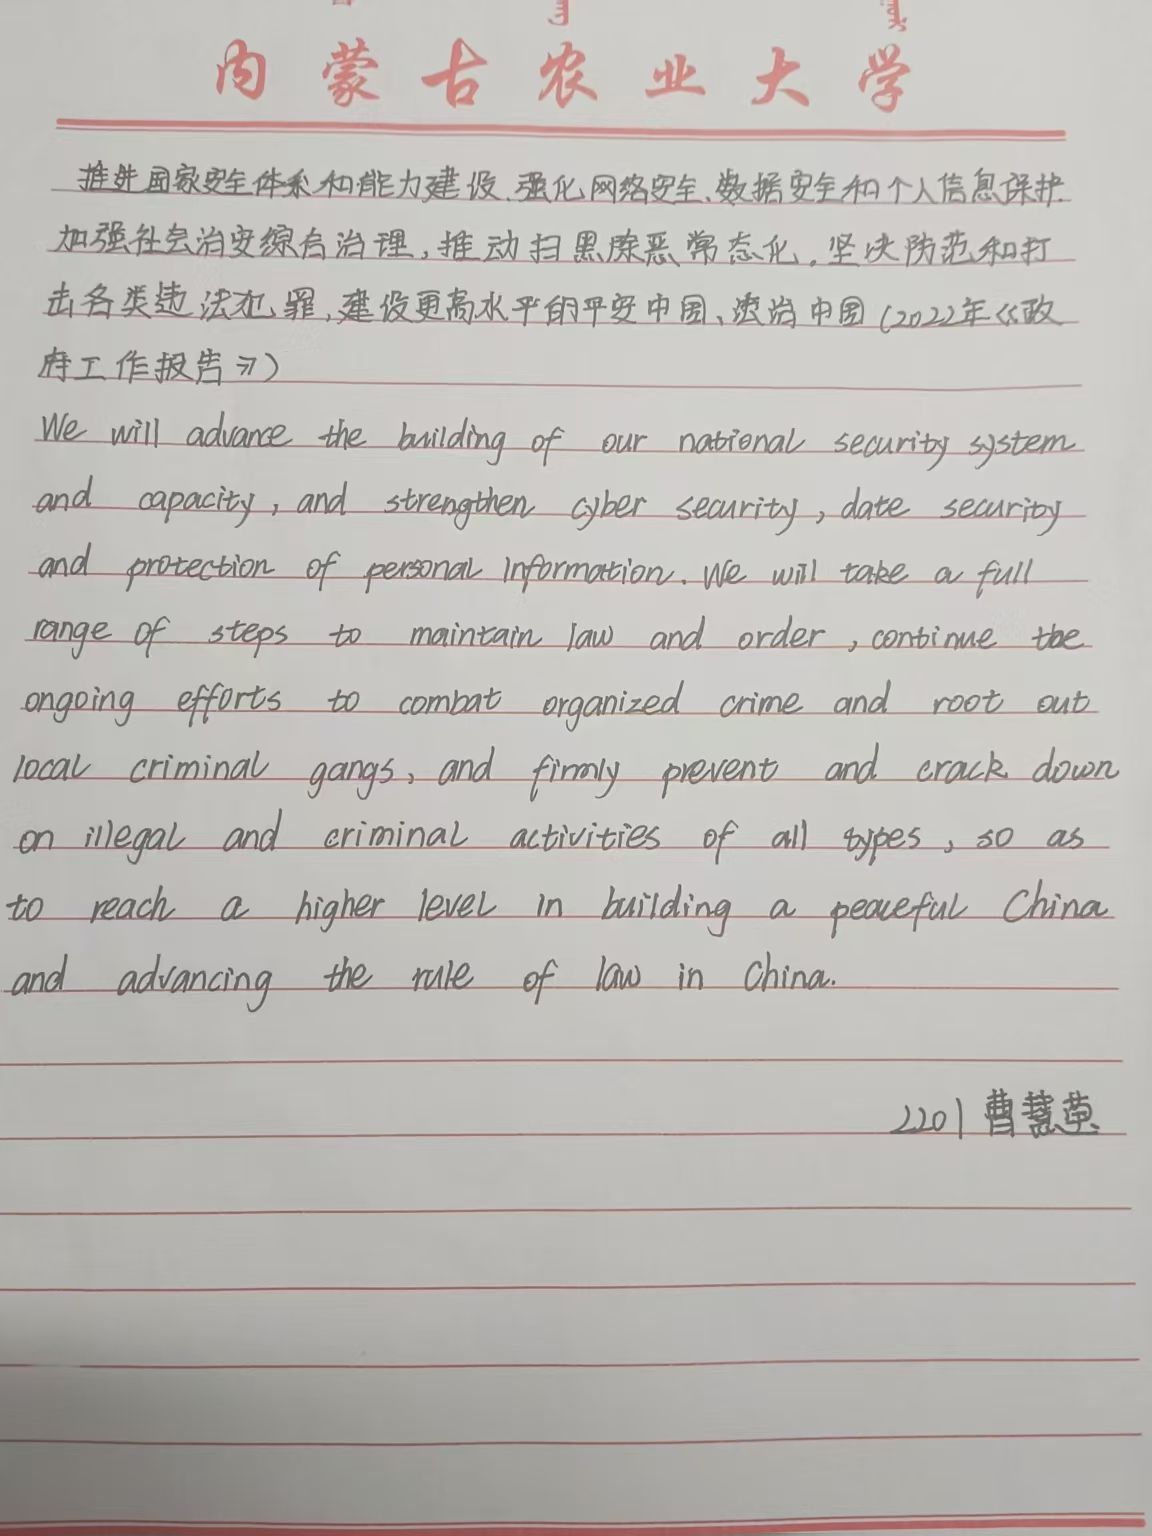 内蒙古农业大学
推进国家安全体系和能力建设.强化网络安全、数据安全和个人信息保护.
加强社会治安综合治理,推动扫黑除恶常态化,坚决防范和打
击各类违法犯罪,建设更高水平的平安中国、法治中国(2022年《政
府工作报告》)
We will advance the building of our national security system
and capacity, and strengthen cyber security, date security
and protection of personal information. We will take a full
range of steps to maintain law and order, continue the
ongoing efforts to combat organized crime and root out
local criminal gangs, and firmly prevent and crack down
on illegal and criminal activities of all types, so as
to reach a higher level in building a peaceful China
and advancing the rule of law in China.
2201 曹慧英